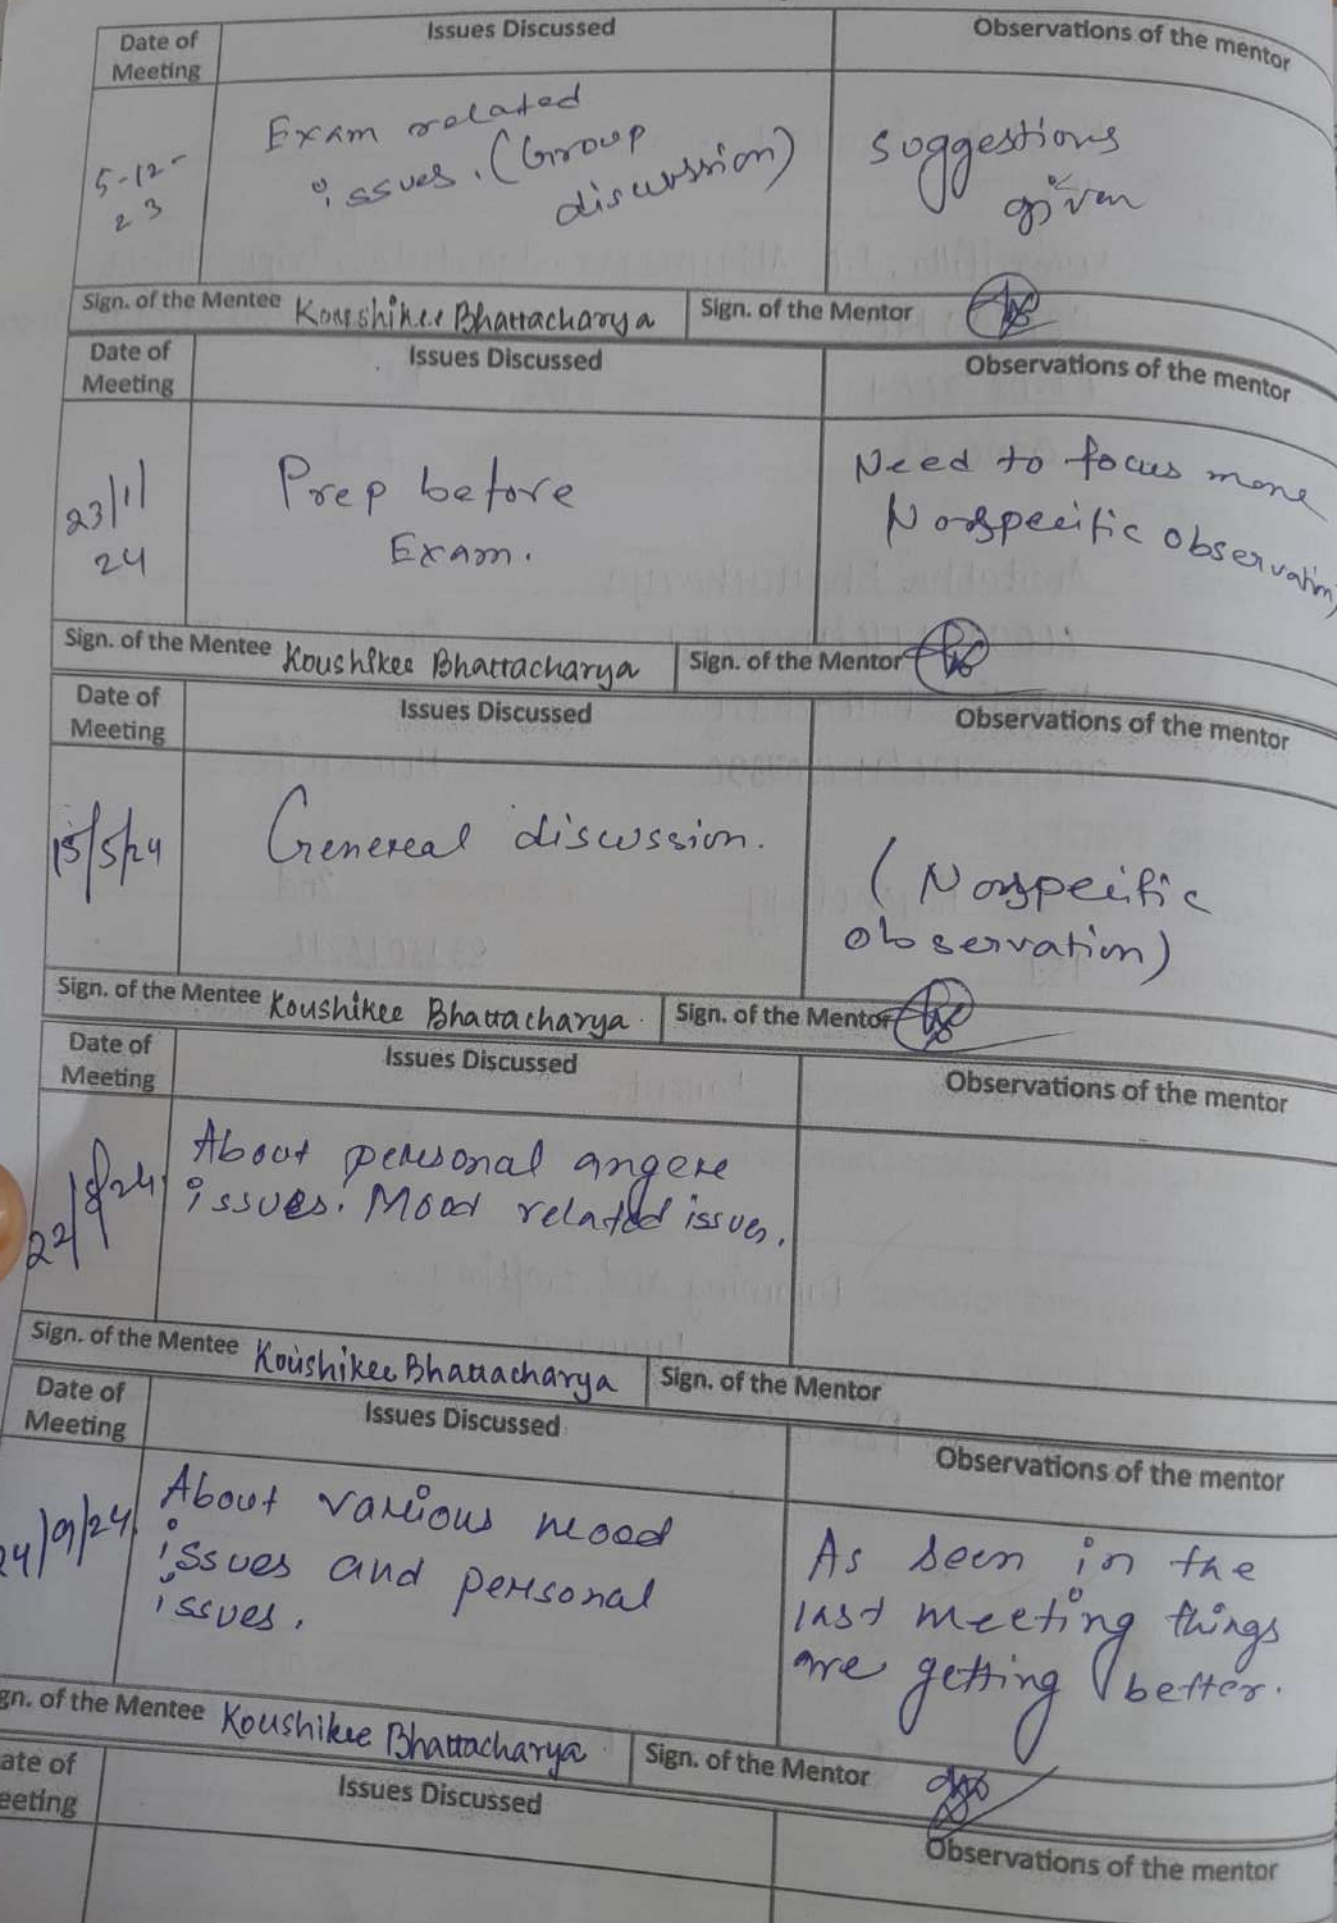 Date of Meeting
Issues Discussed
Observations of the mentor
5-12-
23
Exam related
issues. (Group
discussion)
Suggestions
given
Sign. of the Mentee Koushikee Bhattacharya
Sign. of the Mentor
Date of Meeting
Issues Discussed
Observations of the mentor
23/1/
24
Prep before
Exam.
Need to focus more
Nonspecific observation
Sign. of the Mentee Koushikee Bhattacharya
Sign. of the Mentor
Date of Meeting
Issues Discussed
Observations of the mentor
15/5/24
Genereal discussion.
(Nonspecific
observation)
Sign. of the Mentee Koushikee Bhattacharya
Sign. of the Mentor
Date of Meeting
Issues Discussed
Observations of the mentor
22/8/24
About personal angere
issues. Mood related issues.
Sign. of the Mentee Koushikee Bhattacharya
Sign. of the Mentor
Date of Meeting
Issues Discussed
Observations of the mentor
24/9/24
About various mood
issues and personal
issues.
As seen in the
last meeting things
are getting better.
gn. of the Mentee Koushikee Bhattacharya
Sign. of the Mentor
ate of
eeting
Issues Discussed
Observations of the mentor